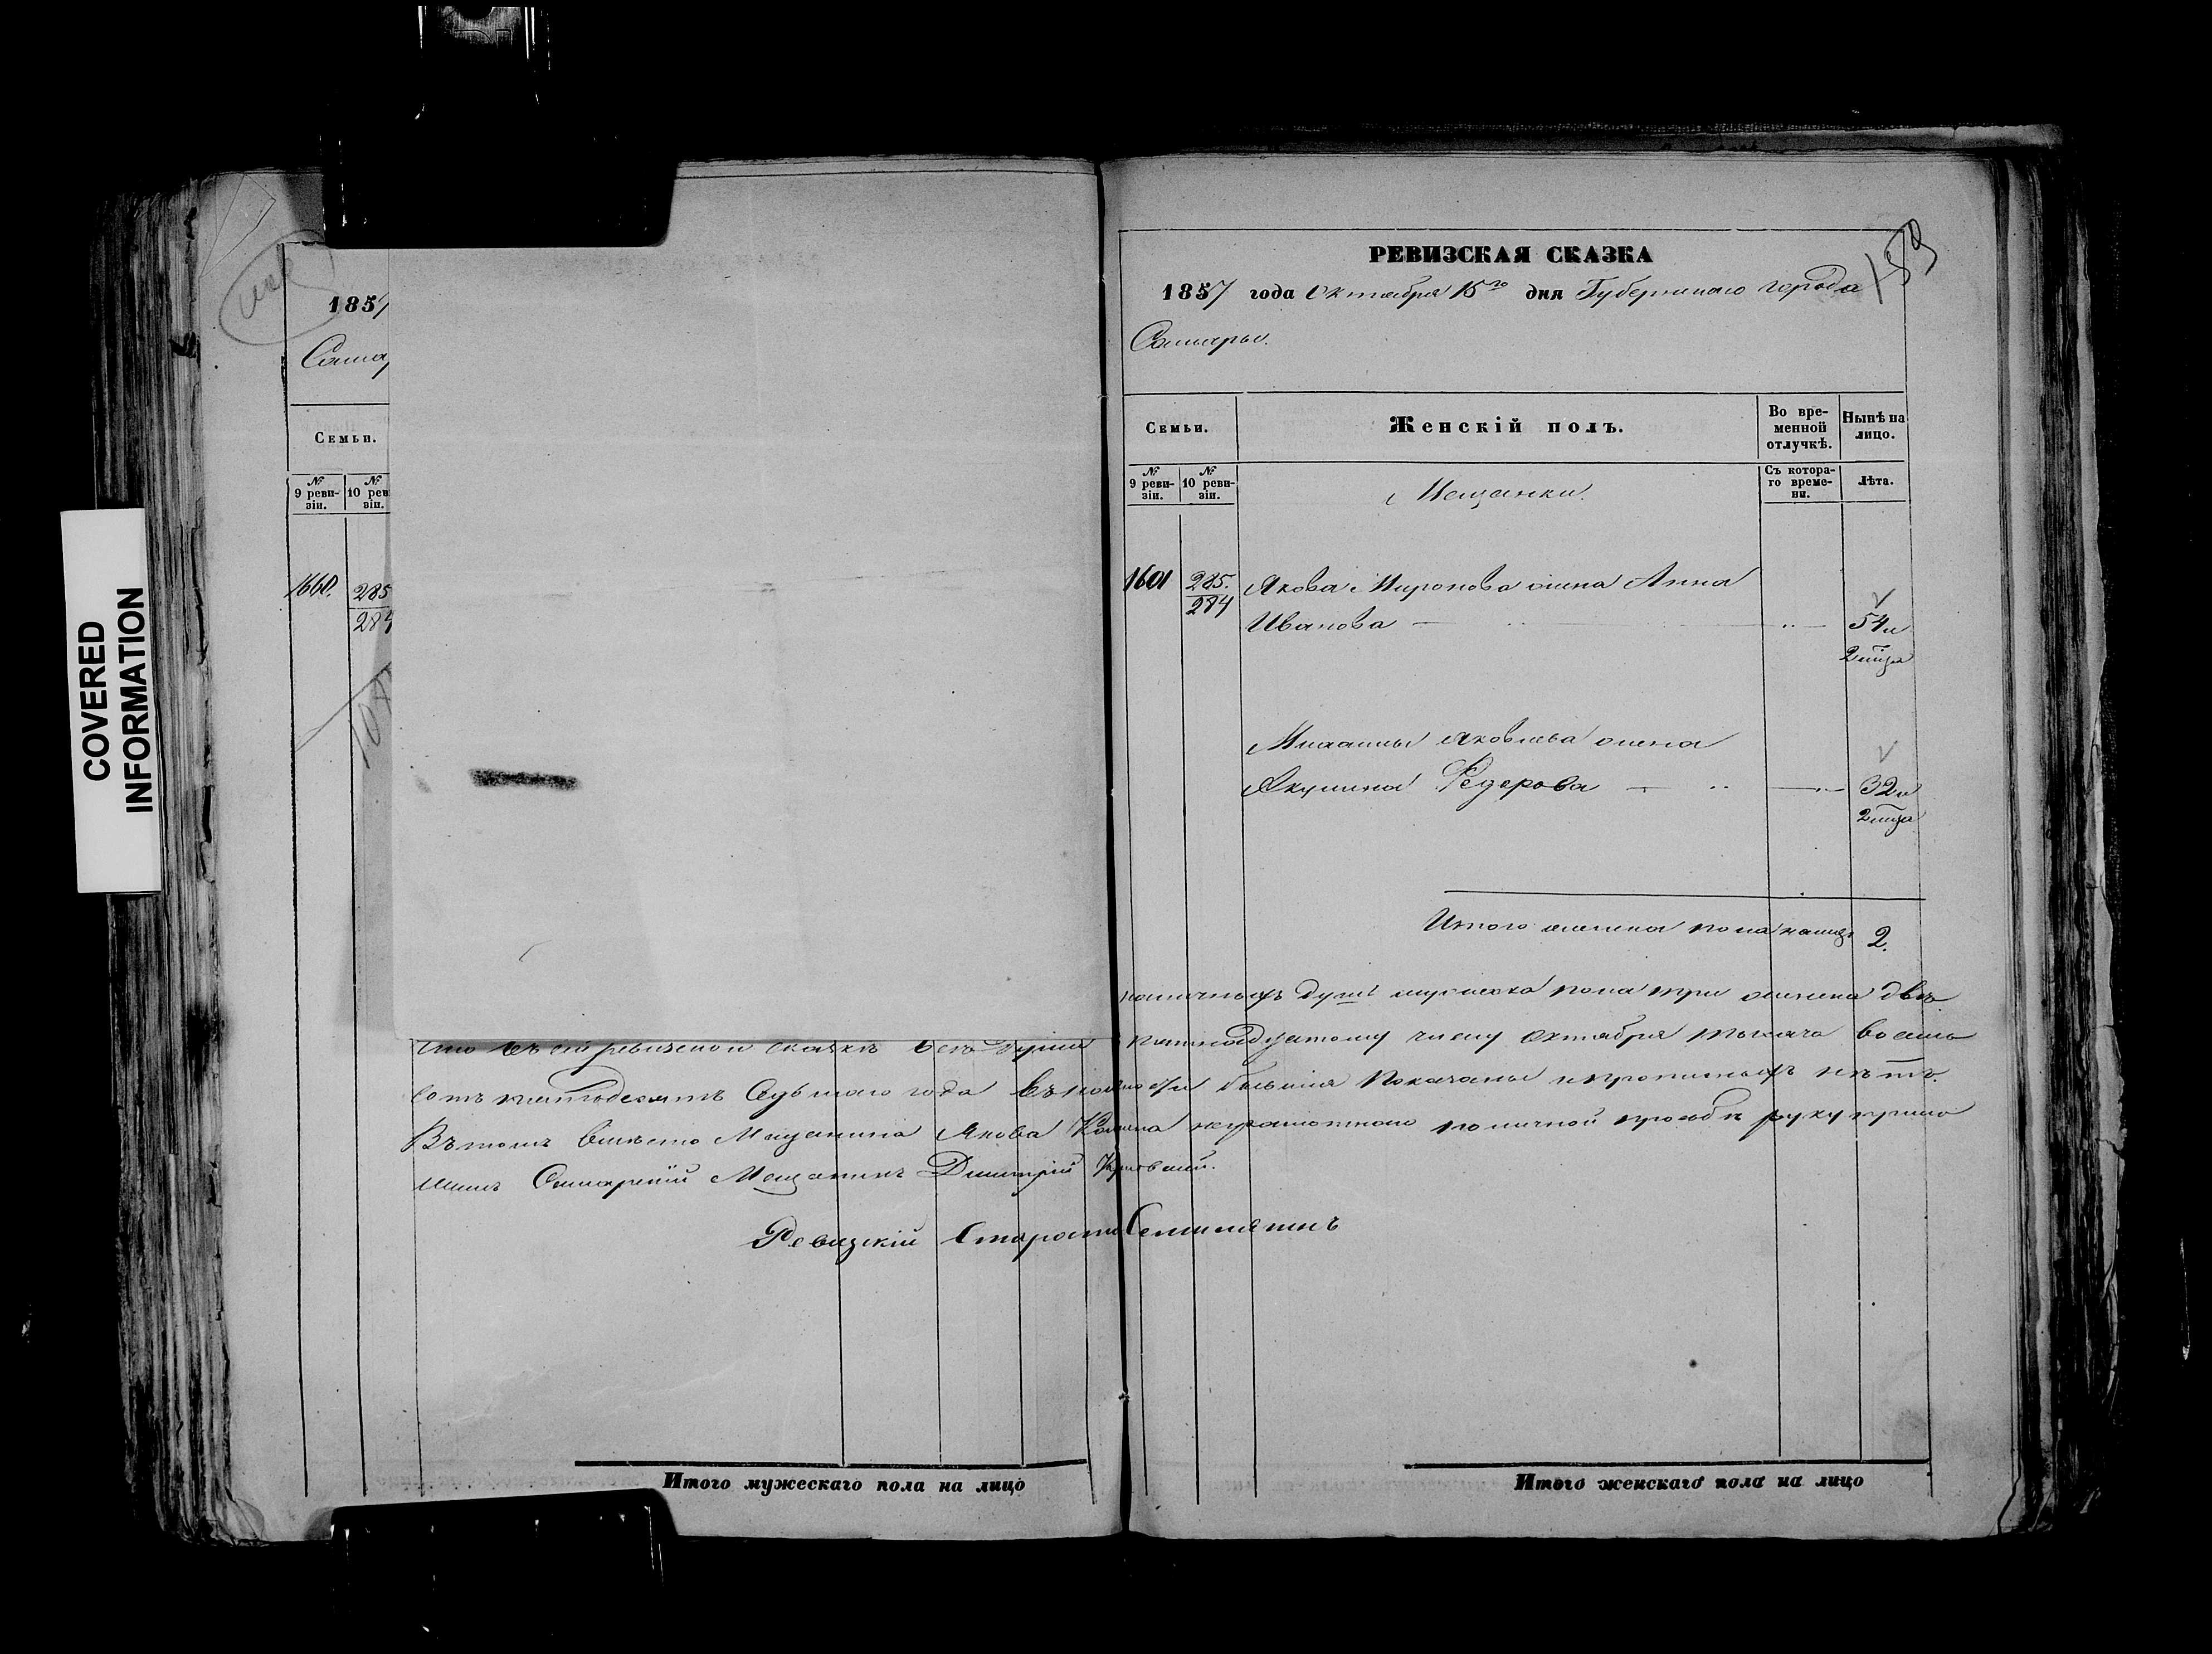 COVERED
INFORMATION
1857
Сама
Семьи.
№ 9 реви-зіи.
№ 10 рев зіи.
1660.
285
284
108
РЕВИЗСКАЯ СКАЗКА
189
1857 года Октября 15го дня Губернскаго города
Самары.
Семьи.
Женскій полъ.
Во вре-менной отлучкѣ.
Нынѣ на лицо.
№ 9 реви-зіи.
№ 10 реви-зіи.
Мещанки.
Съ котора-го време-ни.
Лѣта.
1601
285.
284
Якова Миронова жена Анна
Иванова
54
Михаилы Яковлева жена
Акулина Федерова
32
Итого женска пола налицо 2.
наличныхъ душъ мужеска пола три женска двѣ
Что въ сей ревизской сказкѣ всѣ души
пятнадцатому числу Октября тысяча восемь
сотъ пятьдесятъ Седьмаго года въ
бывшія Показаны и пропиcныхъ нѣтъ.
Въ томъ вмѣсто Мещанина Якова неграмотнаго по личной прозьбѣ руку прило
жилъ Самарскій Мещанинъ Дмитрій
Ревизскій Староста
Итого мужескаго пола на лицо
Итого женскаго пола на лицо